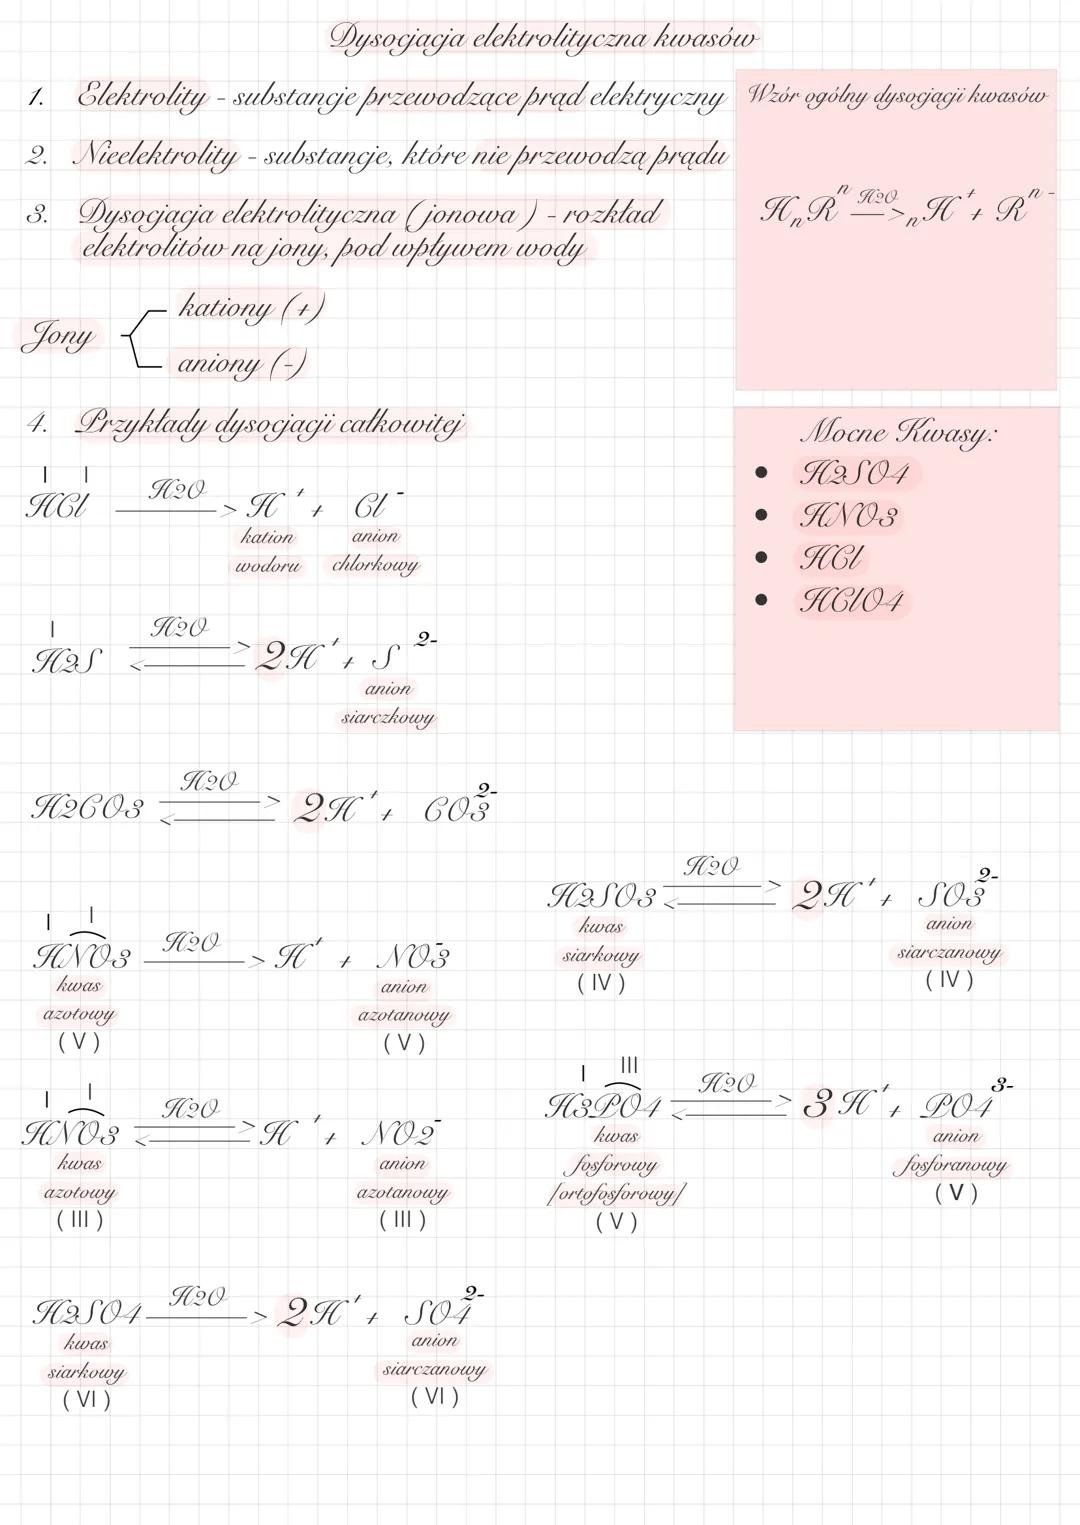 Dysocjacja elektrolityczna kwasów
1. Elektrolity - substancje przewodzące prąd elektryczny
2. Nieelektrolity - substancje, które nie przewodzą prądu
3. Dysocjacja elektrolityczna ( jonowa ) - rozkład
elektrolitów na jony, pod wpływem wody
Jony
kationy (+)
aniony (-)
Wzór ogólny dysocjacji kwasów
HnR^n H2O —> nH^+ + R^n-
4. Przykłady dysocjacji całkowitej
Mocne Kwasy:
• H2SO4
• HNO3
• HCl
• HClO4
I I
HCl H2O —> H^+ + Cl^-
kation anion
wodoru chlorkowy
I
H2S H2O ⇄ 2H^+ + S^2-
anion
siarczkowy
H2CO3 H2O ⇄ 2H^+ + CO3^2-
H2SO3 H2O ⇄ 2H^+ + SO3^2-
kwas anion
siarkowy siarczanowy
( IV ) ( IV )
I I
HNO3 H2O —> H^+ + NO3^-
kwas anion
azotowy azotanowy
( V ) ( V )
I III
H3PO4 H2O ⇄ 3H^+ + PO4^3-
kwas anion
fosforowy fosforanowy
[ortofosforowy] ( V )
( V )
I I
HNO3 H2O ⇄ H^+ + NO2^-
kwas anion
azotowy azotanowy
( III ) ( III )
H2SO4 H2O —> 2H^+ + SO4^2-
kwas anion
siarkowy siarczanowy
( VI ) ( VI )